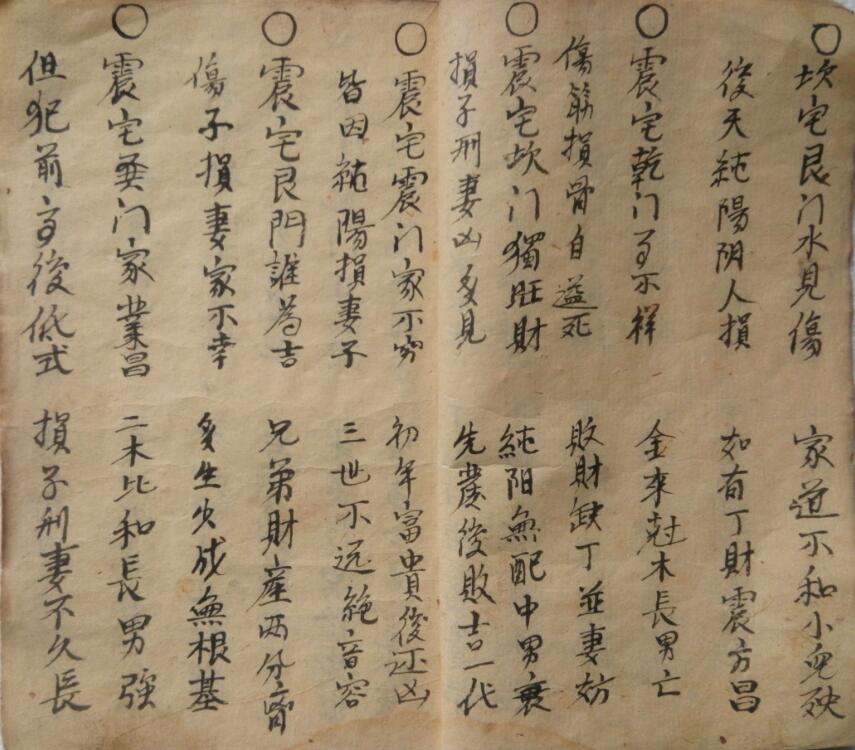 ○坎宅艮门水見傷 家道不和小兒殃
後天純陽阴人損 如有丁財震方昌
○震宅乾门多不祥 金来尅木長男亡
傷筋損骨自縊死 敗財缺丁並妻妨
○震宅坎门獨旺財 純阳無配中男衰
損子刑妻凶多見 先發後敗吉一代
○震宅震门家不穷 初年富貴後还凶
皆因純陽損妻子 三世不远絶音容
○震宅艮門誰為吉 兄弟財産两分
傷子損妻家不幸 多生少成無根基
○震宅巽门家業昌 二木比和長男強
但犯前高後低式 損子刑妻不久長